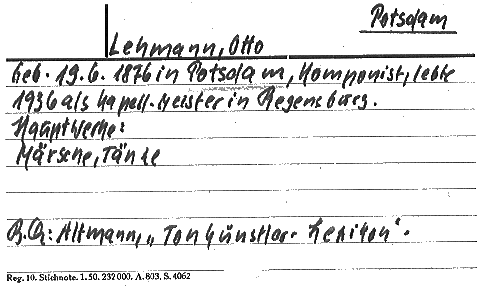 Potsdam
Lehmann, Otto
Geb. 19.6. 1876 in Potsdam, Komponist, lebte
1936 als Kapell-meister in Regensburg.
Hauptwerke:
Märsche, Tänze
B.Q.: Altmann, „Tonkünstler-Lexikon".
Reg. 10. Stichnote. 1. 50. 232 000. A. 803. S. 4062